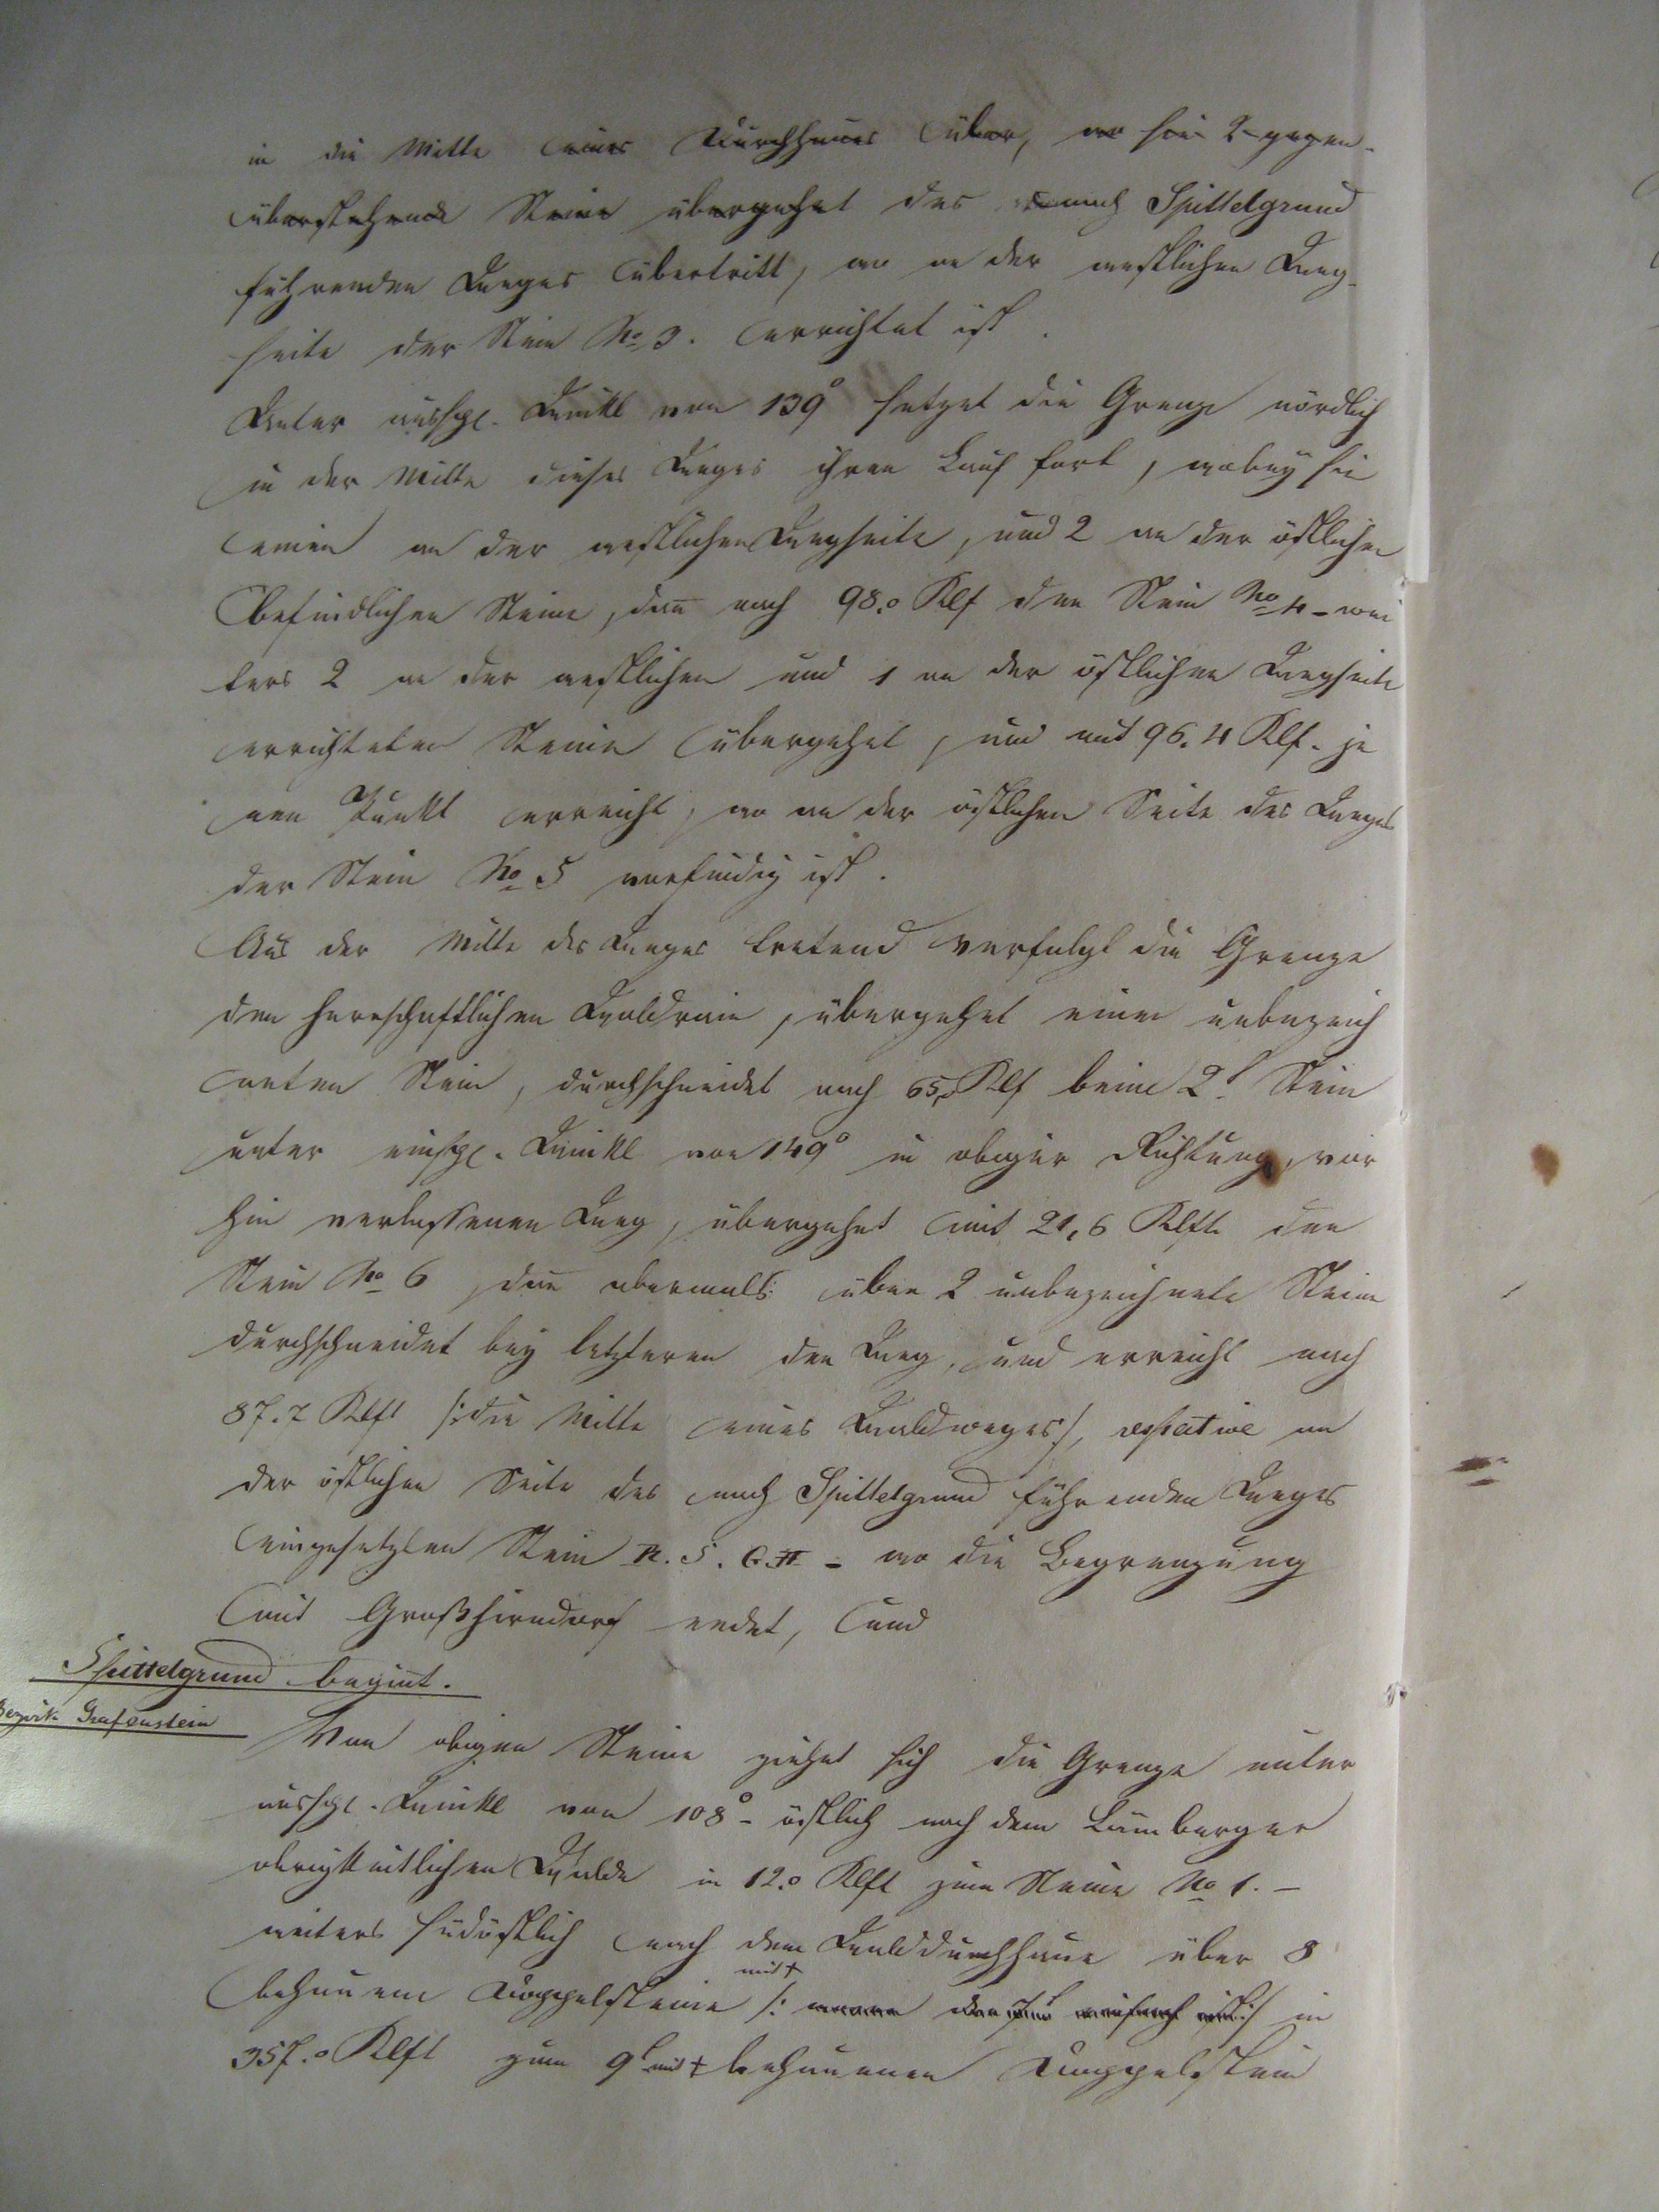 in die Mitte eines Durchhaues über, wo sie 2 gegen-
überstehende Steine übergehet des nach Spittelgrund
führenden Weeges übertritt, wo an der westlichen Weeg-
seite der Stein No 3. errichtet ist.
Unter ausspr. Winkl von 139° setzet die Grenze nördlich
in der Mitte dieses Weeges ihren Lauf fort, wobey sie
einen an der westlichen Weegseite, und 2 an der östlichen
befindlichen Steine, dan̅ nach 98.0 Klf den Stein No 4 - wei
ters 2 an der westlichen und 1 an der östlichen Weegseite
errichteten Steine übergehet, und mit 96.4 Klf. je
nen Punkt erreicht, wo an der östlichen Seite des Weeges
der Stein No 5 vorfindig ist.
Aus der Mitte des Weeges tretend verfolgt die Grenze
den herrschaftlichen Waldrain, übergehet einen unbezeich
neten Stein, durchschneidet nach 65,0 Klf beim 2t Stein
unter einspr. Winkl von 149° in obiger Richtung, vor
hin verlassenen Weeg, übergehet mit 21,6 Klft den
Stein No 6, dan̅ abermals über 2 unbezeichnete Steine
durchschneidet bey letzteren den Weeg, und erreicht nach
87.2 Klft /: die Mitte eines Waldweges /, respective an
der östlichen Seite des nach Spittelgrund führenden Weeges
eingesetzten Stein R. S. G.H - wo die Begrenzung
mit Großhirndorf endet, und
Spittelgrund begin̅t.
Bezirk Grafenstein
Von obigen Steine ziehet sich die Grenze unter
ausspr. Winkl von 108° - östlich nach dem Lämberger
obrigkeitlichen Walde in 12.0 Klft zum Steine No 1. -
weiters südöstlich nach dem Walddurchhaue über 8
mit +
behauene Doppelsteine /: wovon der 7te einfach ist :/ in
357.0 Klft zum 9t mit + behauenen Doppelstein